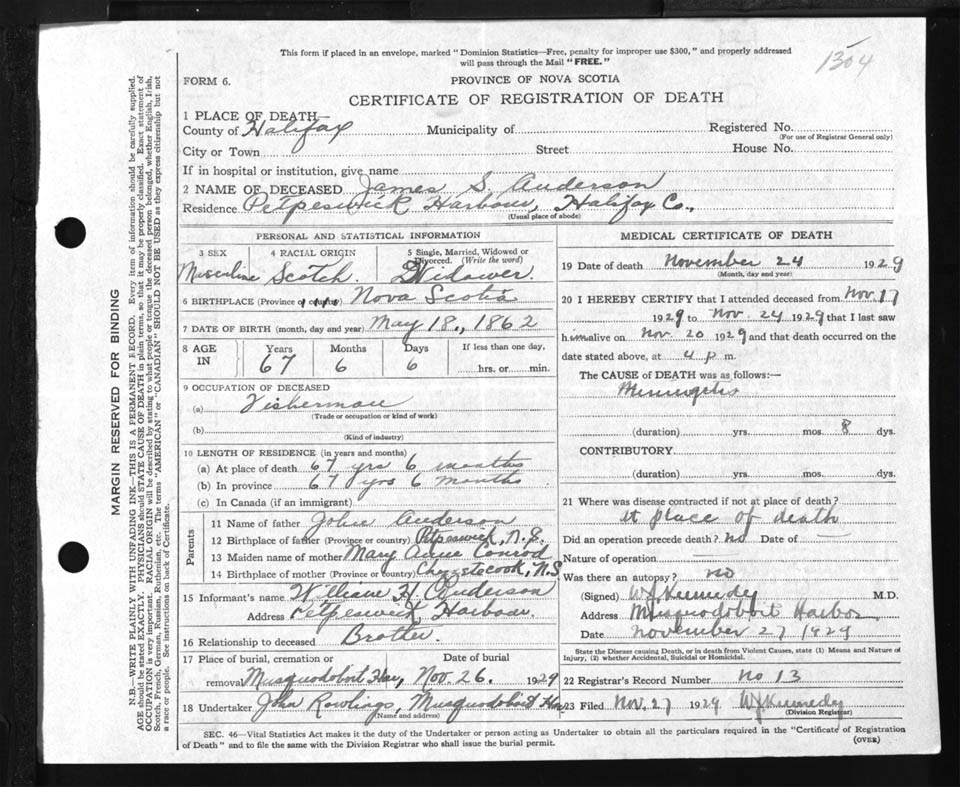 This form if placed in an envelope, marked "Dominion Statistics—Free, penalty for improper use $300," and properly addressed
will pass through the Mail "FREE."
1304
FORM 6.
PROVINCE OF NOVA SCOTIA
CERTIFICATE OF REGISTRATION OF DEATH
1 PLACE OF DEATH—
County of Halifax Municipality of Registered No.
(For use of Registrar General only)
City or Town Street House No.
If in hospital or institution, give name
2 NAME OF DECEASED James S. Anderson
Residence Petpeswick Harbour, Halifax Co.,
(Usual place of abode)
PERSONAL AND STATISTICAL INFORMATION
3 SEX 4 RACIAL ORIGIN 5 Single, Married, Widowed or
Divorced. (Write the word)
Masculine Scotch Widower.
6 BIRTHPLACE (Province or Nova Scotia
7 DATE OF BIRTH (month, day and year) May 18., 1862
8 AGE IN Years Months Days If less than one day,
67 6 6 hrs. or min.
9 OCCUPATION OF DECEASED
(a) Fisherman
(Trade or occupation or kind of work)
(b)
(Kind of industry)
10 LENGTH OF RESIDENCE (in years and months)
(a) At place of death 67 yrs 6 months
(b) In province 67 yrs 6 months
(c) In Canada (if an immigrant)
Parents
11 Name of father John Anderson
12 Birthplace of father (Province or country) Petpeswick, N.S.
13 Maiden name of mother Mary Anne Conrod
14 Birthplace of mother (Province or country) Chezzetcook, N.S
15 Informant's name William H. Anderson
Address Petpeswick Harbour
16 Relationship to deceased Brother.
17 Place of burial, cremation or Date of burial
removal Musquodoboit Har, Nov. 26. 1929
18 Undertaker John Rowlings, Musquodoboit Har
(Name and address)
MEDICAL CERTIFICATE OF DEATH
19 Date of death November 24 1929
(Month, day and year)
20 I HEREBY CERTIFY that I attended deceased from Nov. 17
1929 to Nov. 24 1929 and that I last saw
him alive on Nov. 20 1929 and that death occurred on the
date stated above, at 4 p m.
The CAUSE of DEATH was as follows:—
Meningitis
(duration) yrs. mos. 8 dys.
CONTRIBUTORY
(duration) yrs. mos. dys.
21 Where was disease contracted if not at place of death?
At place of death
Did an operation precede death? No Date of —
Nature of operation
Was there an autopsy? no
(Signed) WJ Kennedy M.D.
Address Musquodoboit Harbor
Date November 27 1929
State the Disease causing Death, or in death from Violent Causes, state (1) Means and Nature of
Injury, (2) whether Accidental, Suicidal or Homicidal.
22 Registrar's Record Number no 13
23 Filed Nov. 27 1929 WJ Kennedy
(Division Registrar)
SEC. 46—Vital Statistics Act makes it the duty of the Undertaker or person acting as Undertaker to obtain all the particulars required in the "Certificate of Registration
of Death" and to file the same with the Division Registrar who shall issue the burial permit.
(OVER)
MARGIN RESERVED FOR BINDING
N.B.—WRITE PLAINLY WITH UNFADING INK—THIS IS A PERMANENT RECORD. Every item of information should be carefully supplied.
AGE should be stated EXACTLY. PHYSICIANS should STATE CAUSE OF DEATH in plain terms, so that it may be properly classified. Exact statement of
OCCUPATION is very important. RACIAL ORIGIN will be described by stating to what people or tongue the deceased person belonged, whether English, Irish,
Scotch, French, German, Russian, Ruthenian, etc. The terms "AMERICAN" or "CANADIAN" SHOULD NOT BE USED as they express citizenship but not
a race or people. See instructions on back of Certificate.